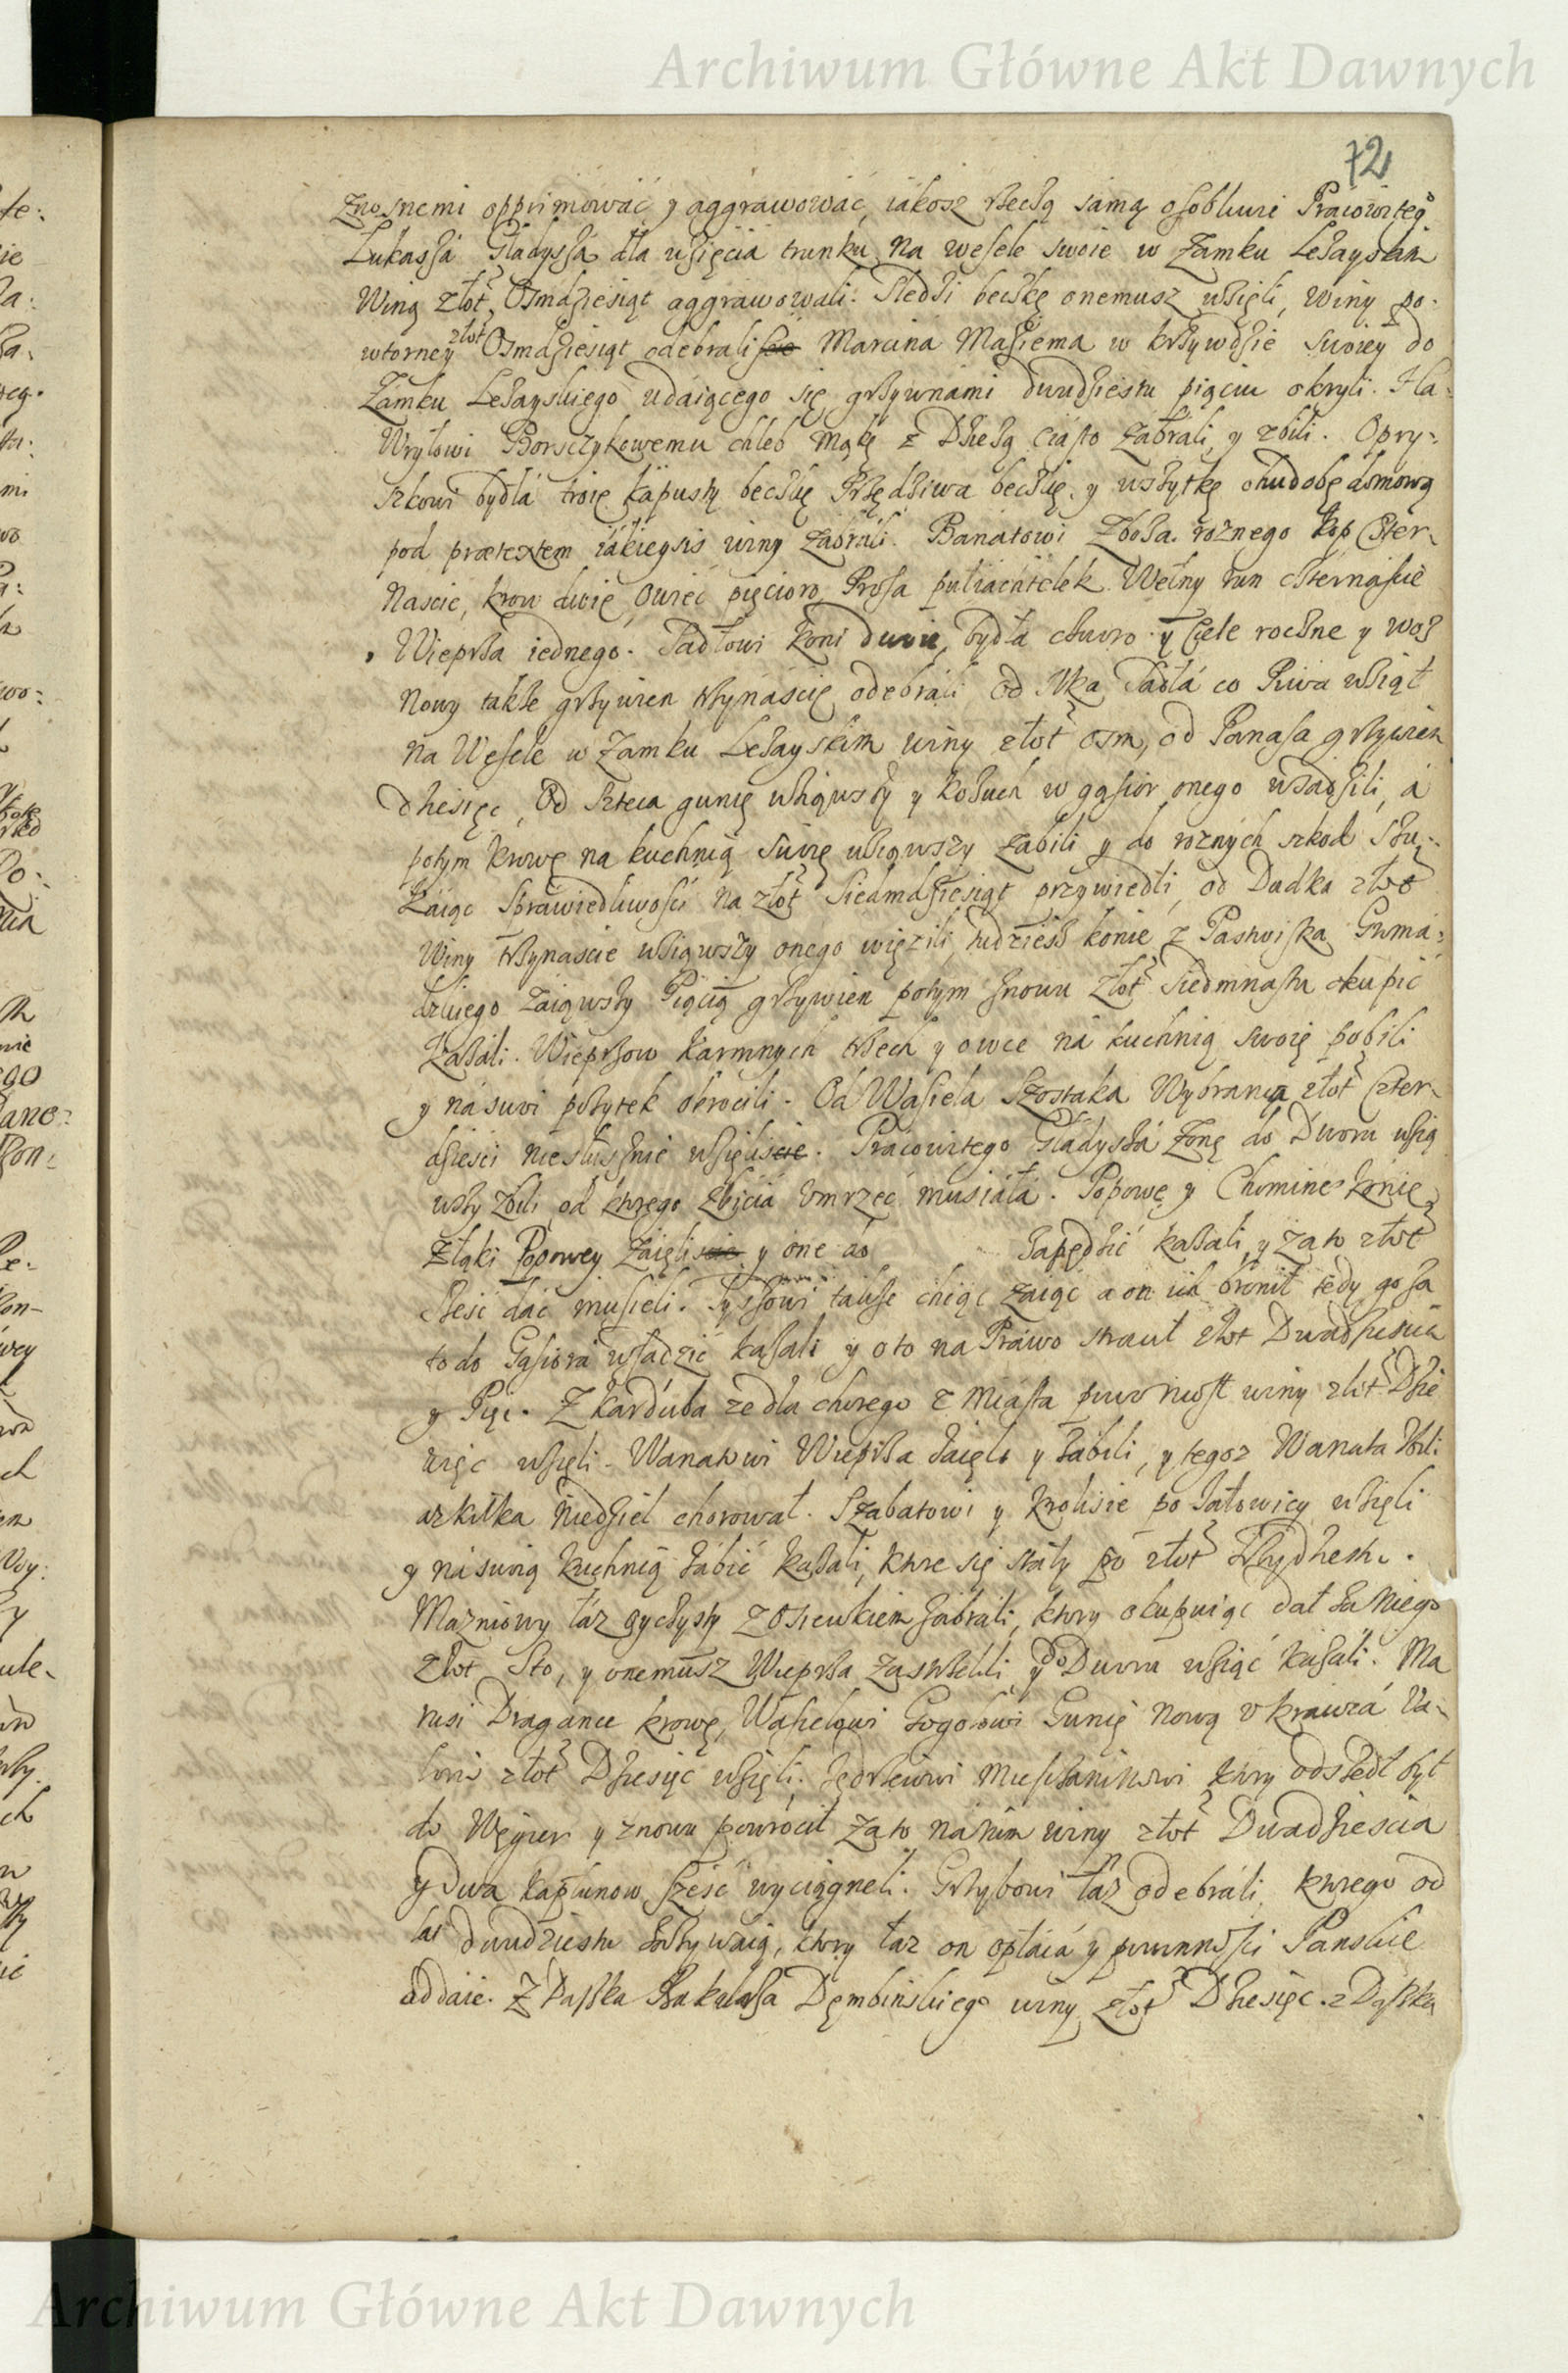 Archiwum Główne Akt Dawnych
72
znosnemi opprimować y aggrawować, iakosz rzeczą samą osobliwie Pracowitego
Łukasza Gładysza dla wzięcia trunku na wesele swoie w Zamku Leżayskim
Winą złot. Osmdziesiąt aggrawowali. Śledzi beczkę onemusz wzięli, winy po-
wtorney złot Osmdziesiąt odebrali Marcina Maziema w krzywdzie swoiey do
Zamku Leżayskiego udaiącego się grzywnami dwudziestu pięciu okryli. Ha-
wryłowi Borsczykowemu chleb mąkę z Dzieżą ciasto zabrali y zbili. Opry-
szkowi bydła troie kapusty beczkę Przędziwa beczkę y wszytkę chudobę domową
pod prætextem iakieysis winy zabrali. Banatowi Zboża roznego kop Czter-
nascie, krow dwie, owiec pięcioro, Prosa pułtrzecie Wełny run czternascie
Wieprza iednego. Sadłowi koni dwoie, bydła czworo y Ciele roczne y woz
nowy także grzywien trzynascie odebrali od Iwka Sadła co Piwa wziął
na Wesele w Zamku Leżayskim winy złot osm, od Panasa grzywien
dziesięc, Od Steca gunię wziąwszy y kożuch w gąsior onego wsadzili, a
potym krowę na kuchnią swoię wziąwszy zabili y do roznych szkod szu-
kaiąc Sprawiedliwości na złot Siedmdziesiąt przywiedli, od Dudka złot
Winy trzynascie wziąwszy onego więzili, tudziesz konie z Pastwiska Groma-
dzkiego zaiąwszy Pięcią grzywien potym znowu złot Siedmnastu okupić
kazali. Wieprzow karmnych trzech y owce na kuchnią swoię pobili
y na swoi pożytek obrocili. Od Wasiela Szostaka Wybranca złot Czter-
dzieści niesłusznie wzięli. Pracowitego Gładysza Żonę do Dworu wzią
wszy zbili od ktorego zbicia vmrzeć musiała. Popowe y Chomine konie
z łąki Popowey zaięli y one do zapędzić kazali y za to złot
Sześć dać musieli. Tyssowi także chcąc zaiąć a on ich bronił tedy go za
to do Gąsiora wsadzić kazali y o to na Prawo straut złot Dwadzieścia
y Pięć. Z Karduba ze dla chorego z miasta piwo niosł winy złot Dzie
więć wzięli. Wanatowi Wieprza zaięli y zabili, y tegoz Wanata zbili
az kilka niedziel chorował. Szabatowi y Krolisie po Jałowicy wzięli
y na swoią kuchnią zabić kazali, ktore się stały po złot Trzydziestu.
Mazniowy łaz oyczysty z Osieukiem zabrali, ktory okupuiąc dał za niego
złot Sto, y onemusz Wieprza zastrzelili y do Dworu wziąć kazali. Ma
rusi Dragance krowę, Wasielowi Gogolowi Gunię nową v krawca Wa-
lowi złot Dziesięć wzięli. Jędrzeiowi Mieszkaninowi ktory odszedł był
do Węgier y znowu powrocił za to na nim winy złot Dwadziescia
y dwa kapłunow sześć wyciągneli. Grzybowi łaz odebrali ktorego od
lat dwudziestu zażywaią, ktory łaz on opłaca y powinności Panskie
oddaie. Z Daszka Dębinskiego winy złot Dziesięc. z Daszka
Archiwum Główne Akt Dawnych